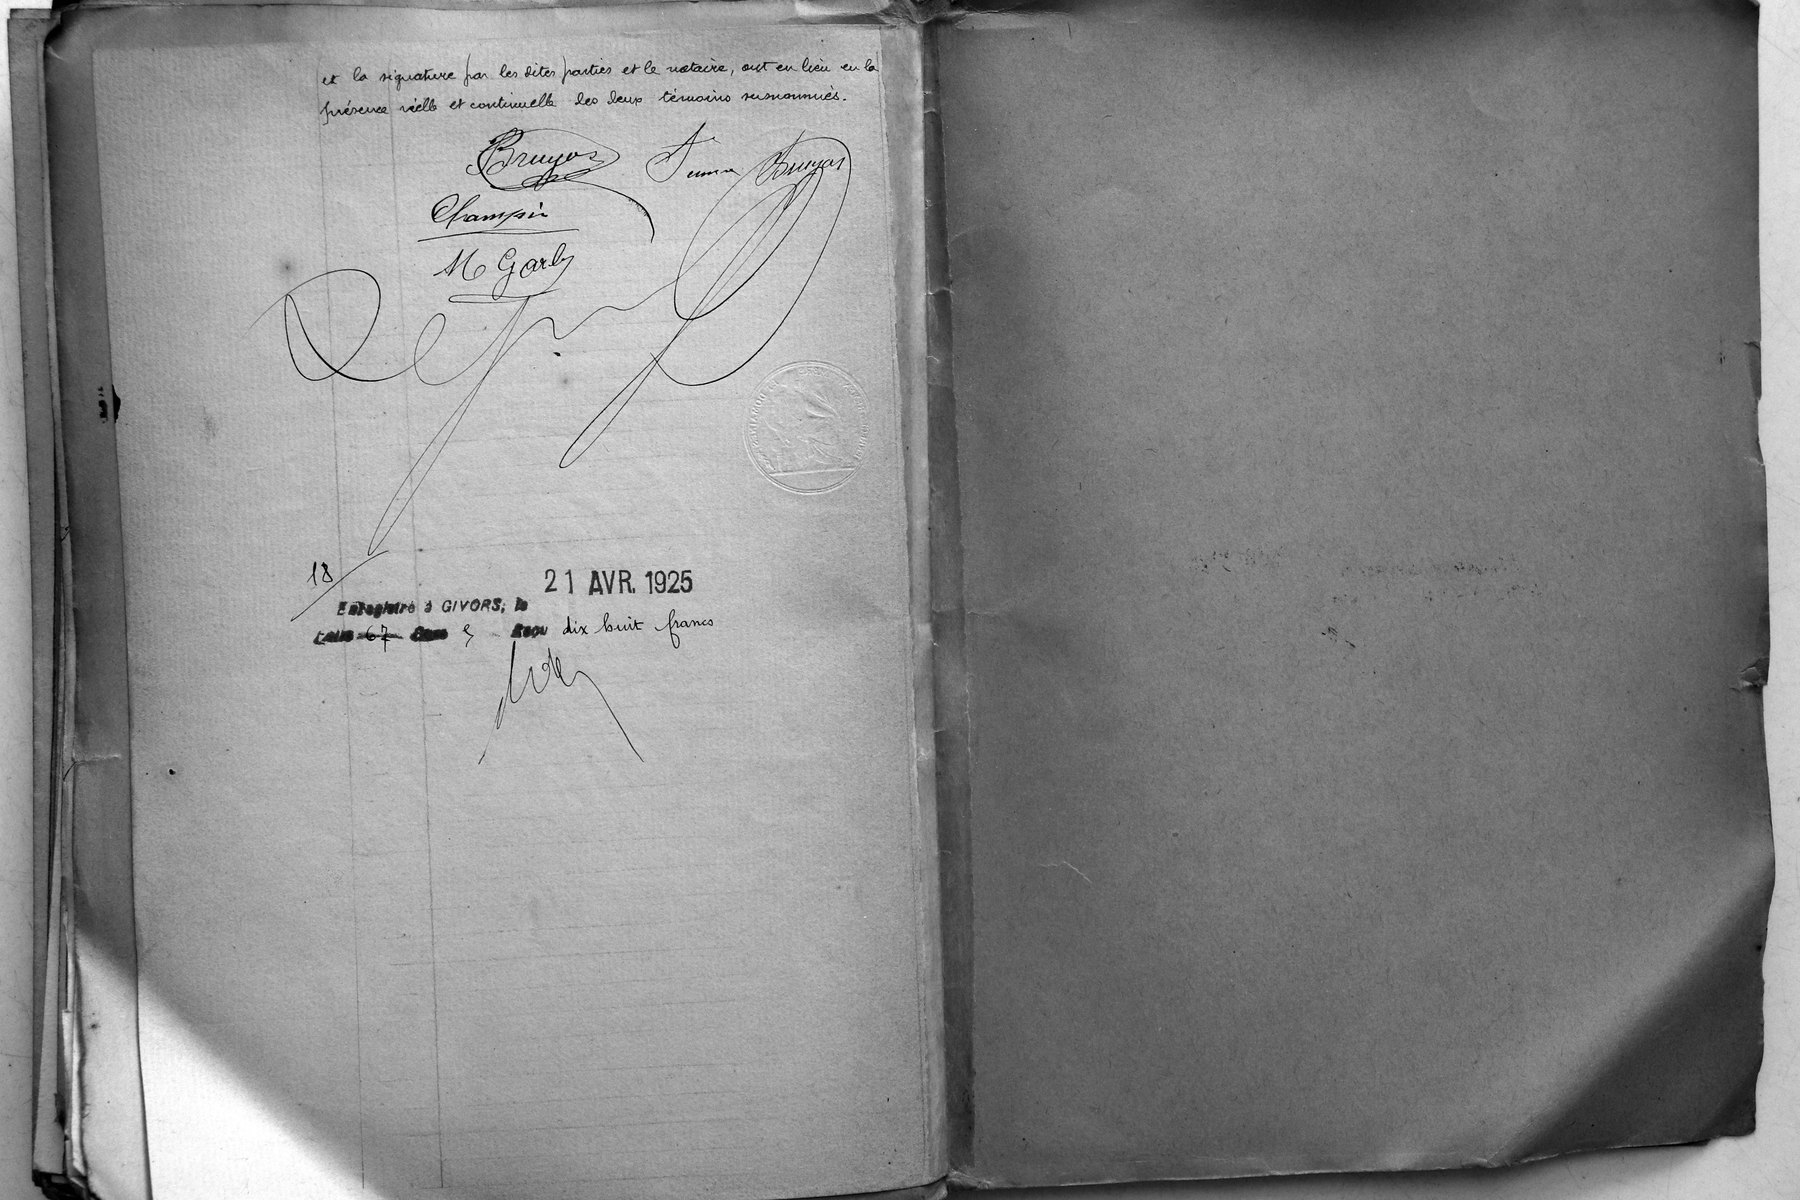 et la signature par les dites parties et le notaire, ont eu lieu en la
présence réelle et continuelle des deux témoins susnommés.
Bruyas
Bruyas
Champin
M Garby
18
21 AVR. 1925
Enregistré à GIVORS, le
67 Case 9 Reçu dix huit francs